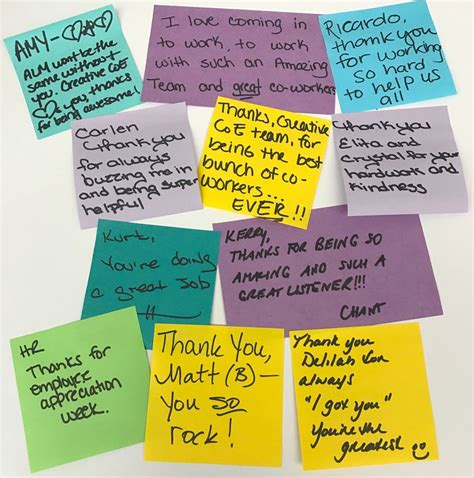 AMY-♡♡♡
ALM wont be the
same without
you. Creative CoE
♡s you thanks
for being awesome!
I love coming in
to work, to work
with such an Amazing
Team and great co-workers
Ricardo,
thank you
for working
so hard
to help us
all
Carlen
thank you
for always
buzzing me in
and being super
helpful
Thanks, Creative
CoE team, for
being the best
bunch of co-
workers...
EVER!!
thank you
Elita and
Crystal for your
hardwork and
Kindness
Kurt,
You're doing
a great job
KERRY,
THANKS FOR BEING SO
AMAZING AND SUCH A
GREAT LISTENER!!!
CHANT
HR
Thanks for
employee
appreciation
week.
Thank You,
Matt (B)-
You so
rock!
Thank you
Delilah for
always
"I got you"
You're the
greatest